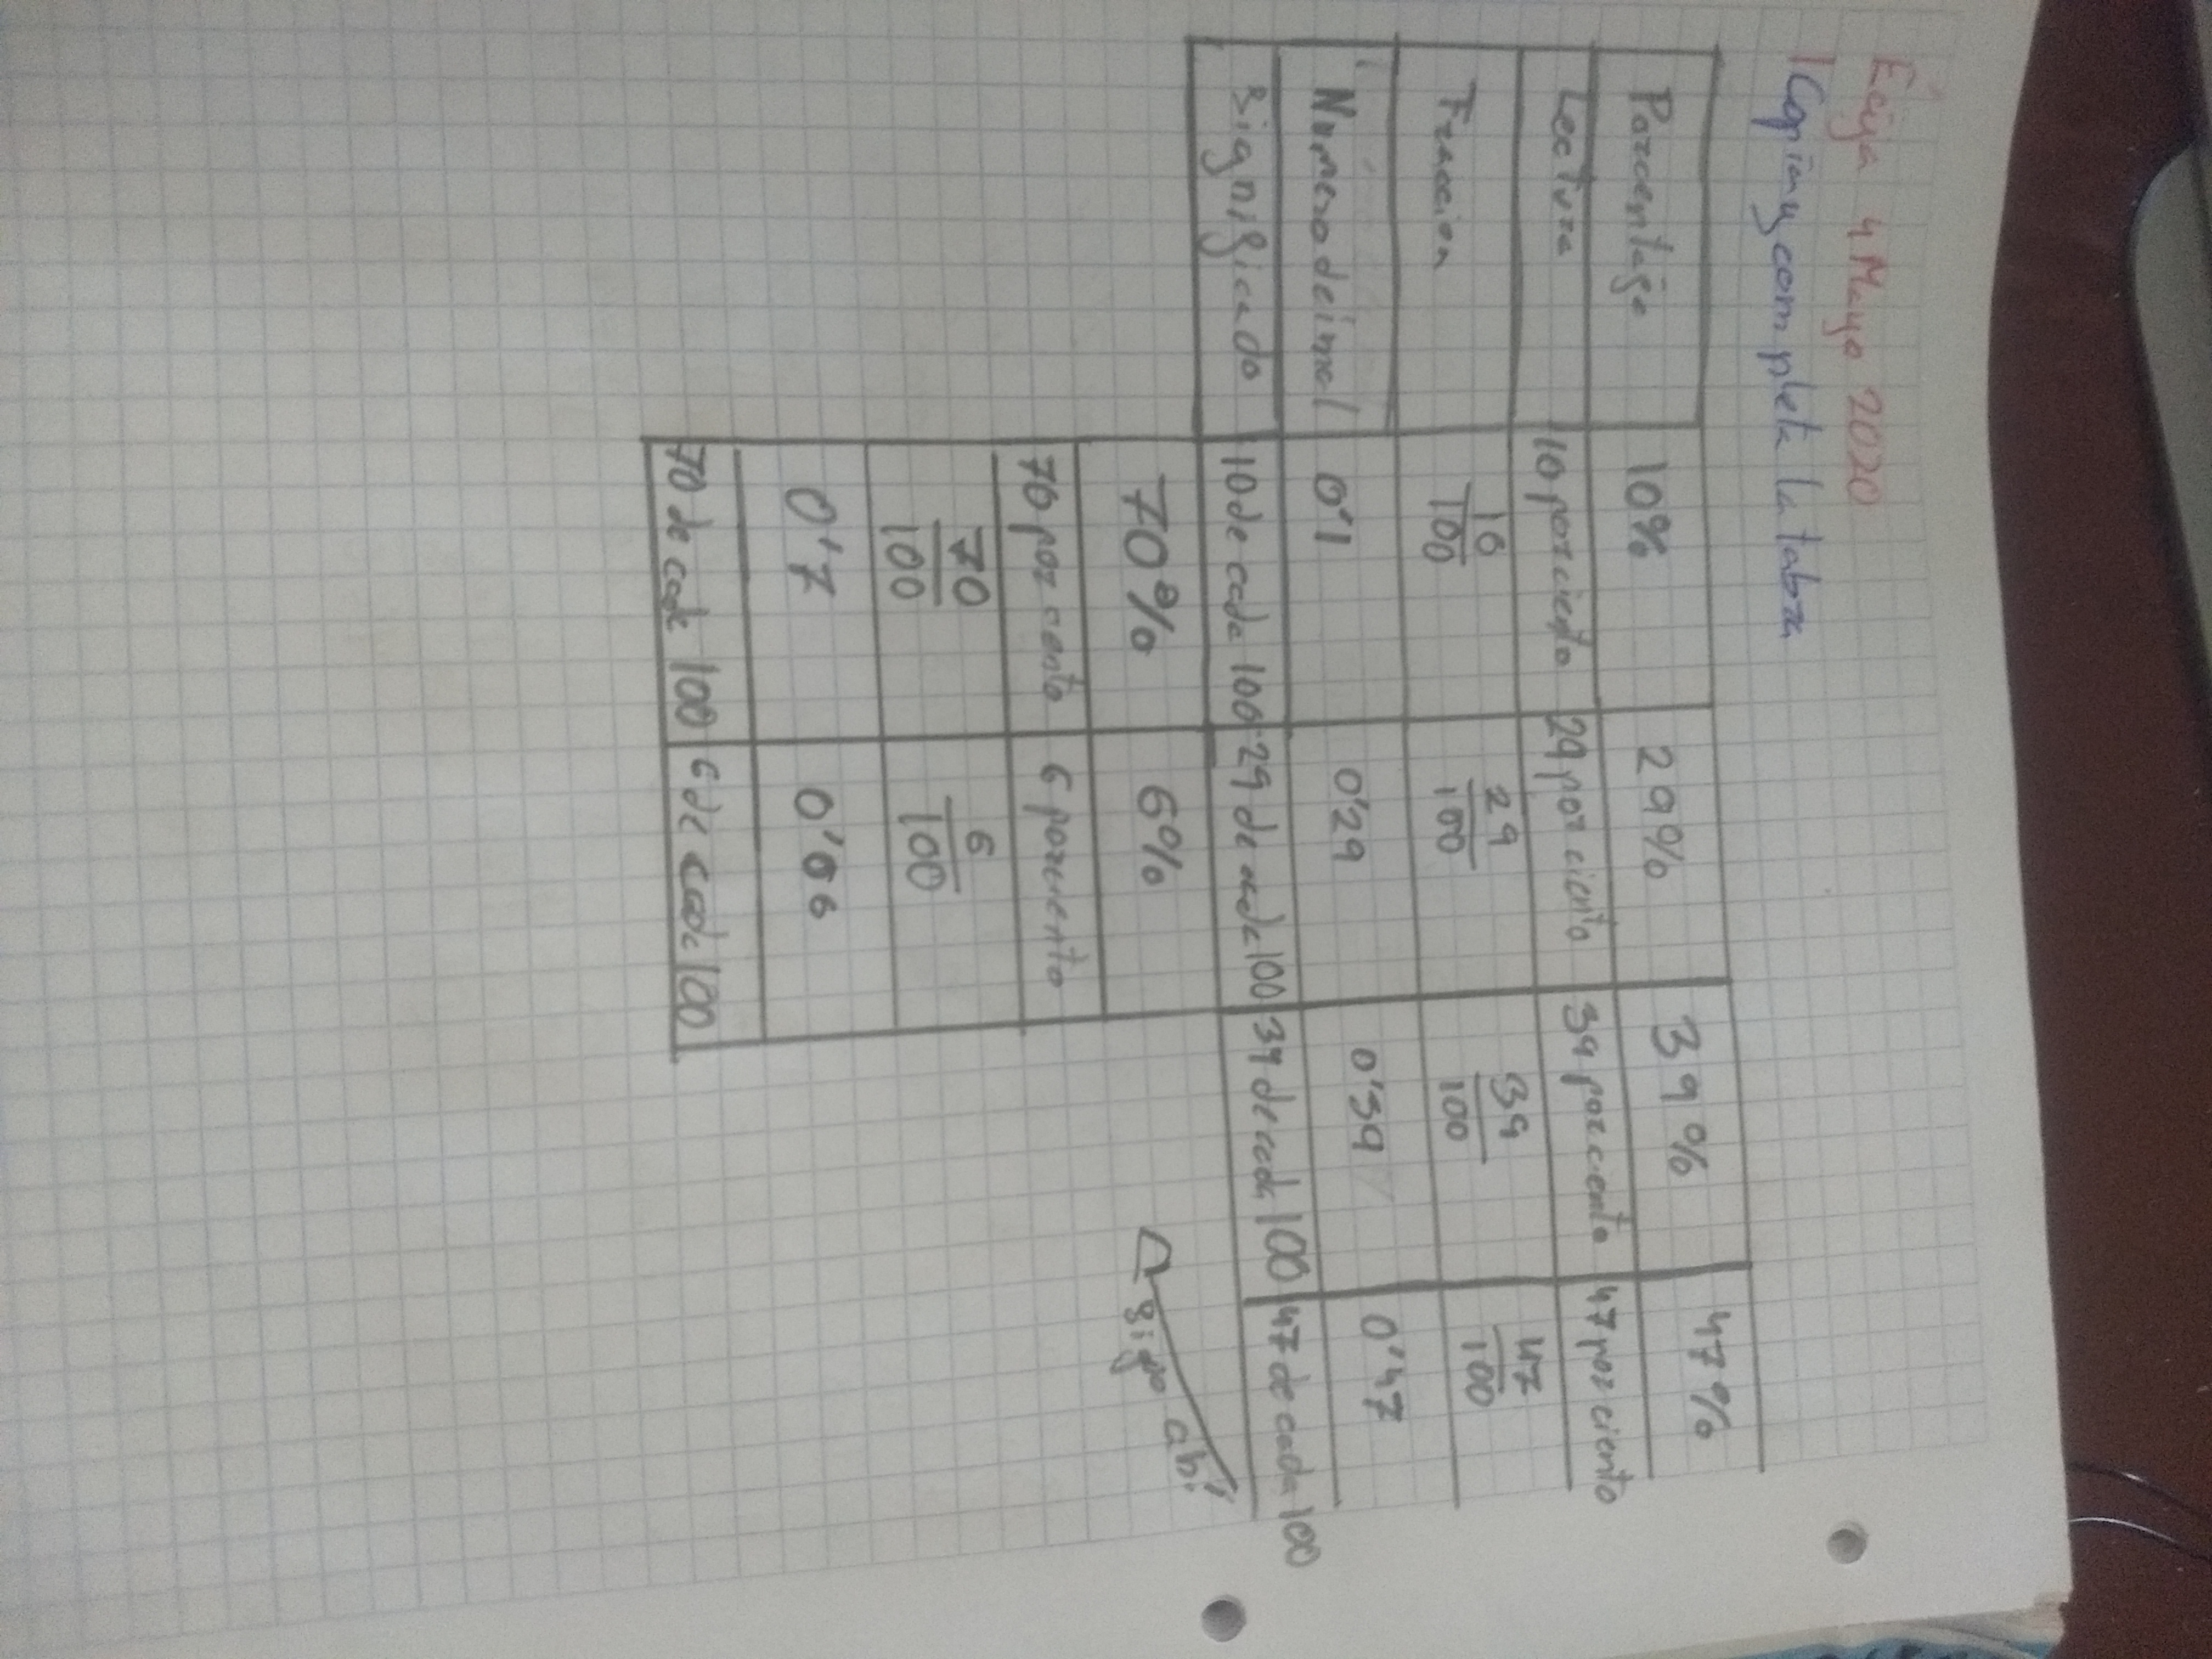 Écija 4 Mayo 2020
1 Copia y completa la tabza
Porcentaje 10% 29% 39% 47%
Lectura 10 por ciento 29 por ciento 39 por ciento 47 por ciento
Fraccion 10/100 29/100 39/100 47/100
Numero deimal 0'1 0'29 0'39 0'47
Significado 10 de cada 100 29 de cada 100 39 de cada 100 47 de cada 100
sigo ahí
70% 6%
70 por cento 6 porciento
70/100 6/100
0'7 0'06
70 de cada 100 6 de cada 100